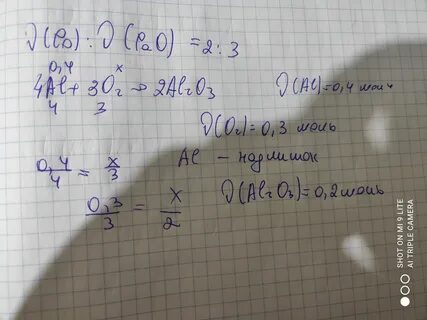 ν(Ca) : ν(CaO) = 2 : 3
0,4 x
4Al + 3O₂ → 2Al₂O₃ ν(Al) = 0,4 моль
4 3
ν(O₂) = 0,3 моль
0,4/4 = x/3 Al – надлишок
0,3/3 = x/2 ν(Al₂O₃) = 0,2 моль
SHOT ON MI 9 LITE
AI TRIPLE CAMERA